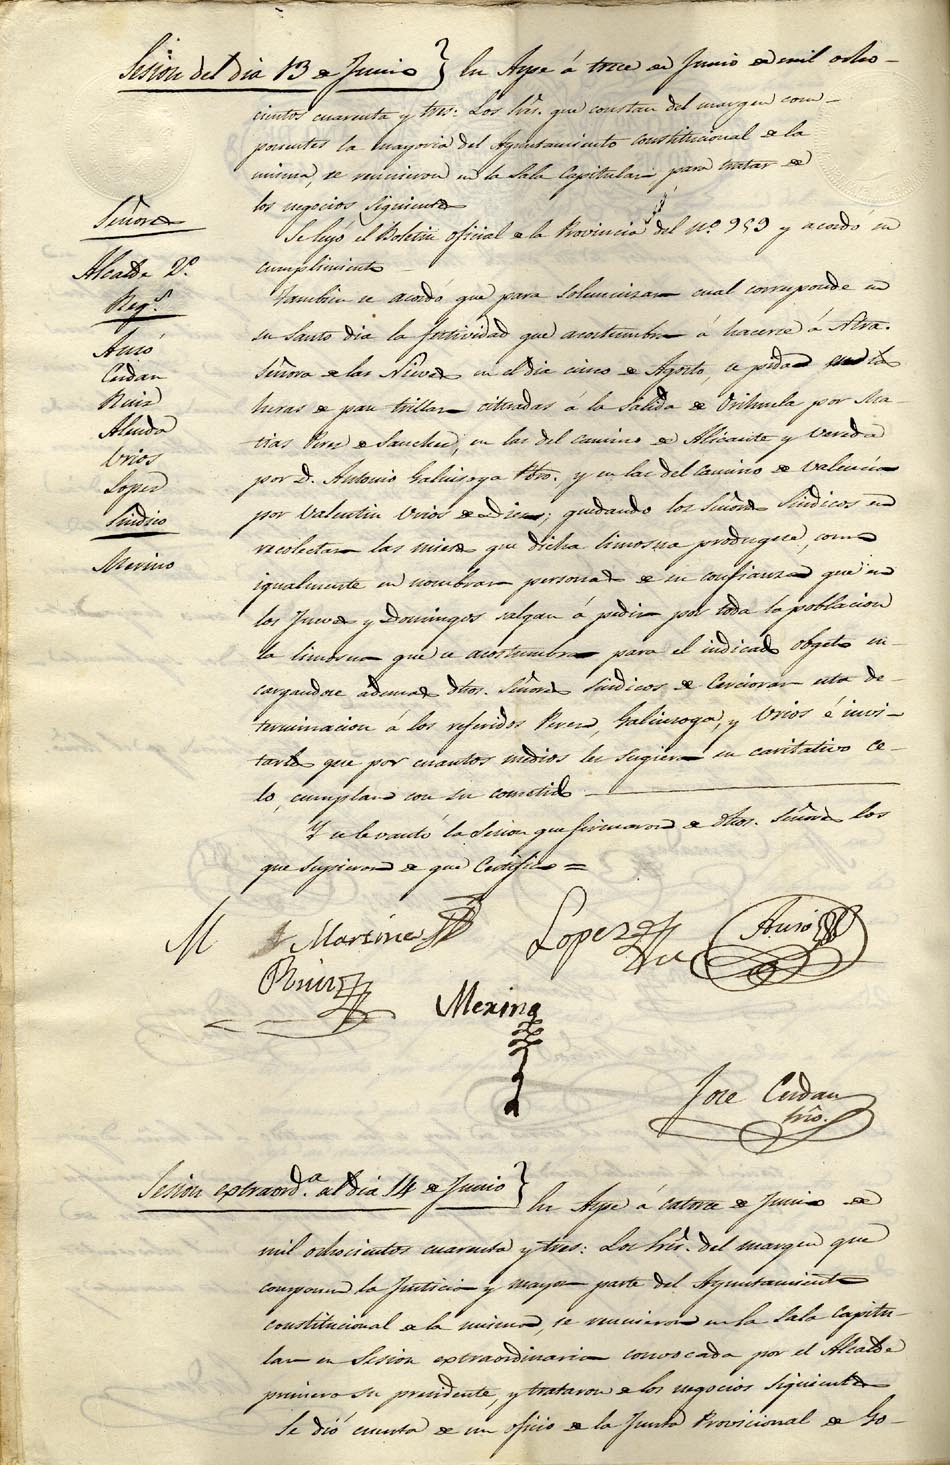 Sesion del dia 13 de Junio } En Aspe á trece de Junio de mil ocho-
cientos cuarenta y tres: Los Sres. que constan del margen com-
ponentes la mayoria del Ayuntamiento constitucional de la
misma, se reunieron en la Sala Capitular para tratar de
los negocios siguientes
Señores
Alcalde 2.º
Reg.s
Auró
Cerdan
Ruiz
Almda
Urios
Lopez
Sindico
Merino
Se leyó el Boletin oficial de la Provincia del nº. 959 y acordó su
cumplimiento
Tambien se acordó que para solemnizar cual corresponde en
su Santo dia la festividad que acostumbra á hacerse á Ntra.
Señora de las Nieves en el dia cinco de Agosto, se pida en las
heras de pan trillar citeadas á la salida de Orihuela por Ma-
tias Perez de Sanchez, en las del camino de Alicante y Vereda
por D. Antonio Galiensoga Pbro. y en las del Camino de Valencia
por Valentin Urios de ; quedando los Señores Sindicos en
recolectar las mieses que dicha limosna produgese, como
igualmente en nombrar personas de su confianza que en
los Jueves y Domingos salgan á pedir por toda la poblacion
la limosna que se acostumbra para el indicado objeto en-
cargandose ademas dhos. Señores Sindicos de Cerciorar esta de-
terminacion á los referidos Perez, Galiensoga, y Urios é invi-
tarles que por cuantos medios les sugiera su caritativo ce-
lo, cumplan con su cometido
Y se levantó la Sesion que firmaron de dhos. Señores los
que supieron de que Certifico =
M Martinez Lopez Auró
Ruiz
Merino
Jose Cerdan
Srio.
Sesion extraord.a al dia 14 de Junio } En Aspe á catorce de Junio de
mil ochocientos cuarenta y tres: Los Sres. del margen que
componen la Justicia y mayor parte del Ayuntamiento
constitucional de la misma, se reunieron en la Sala Capitu-
lar en Sesion extraordinaria convocada por el Alcalde
primero su presidente, y trataron de los negocios siguientes
Se dió cuenta de un oficio de la Junta Provicional de Go-